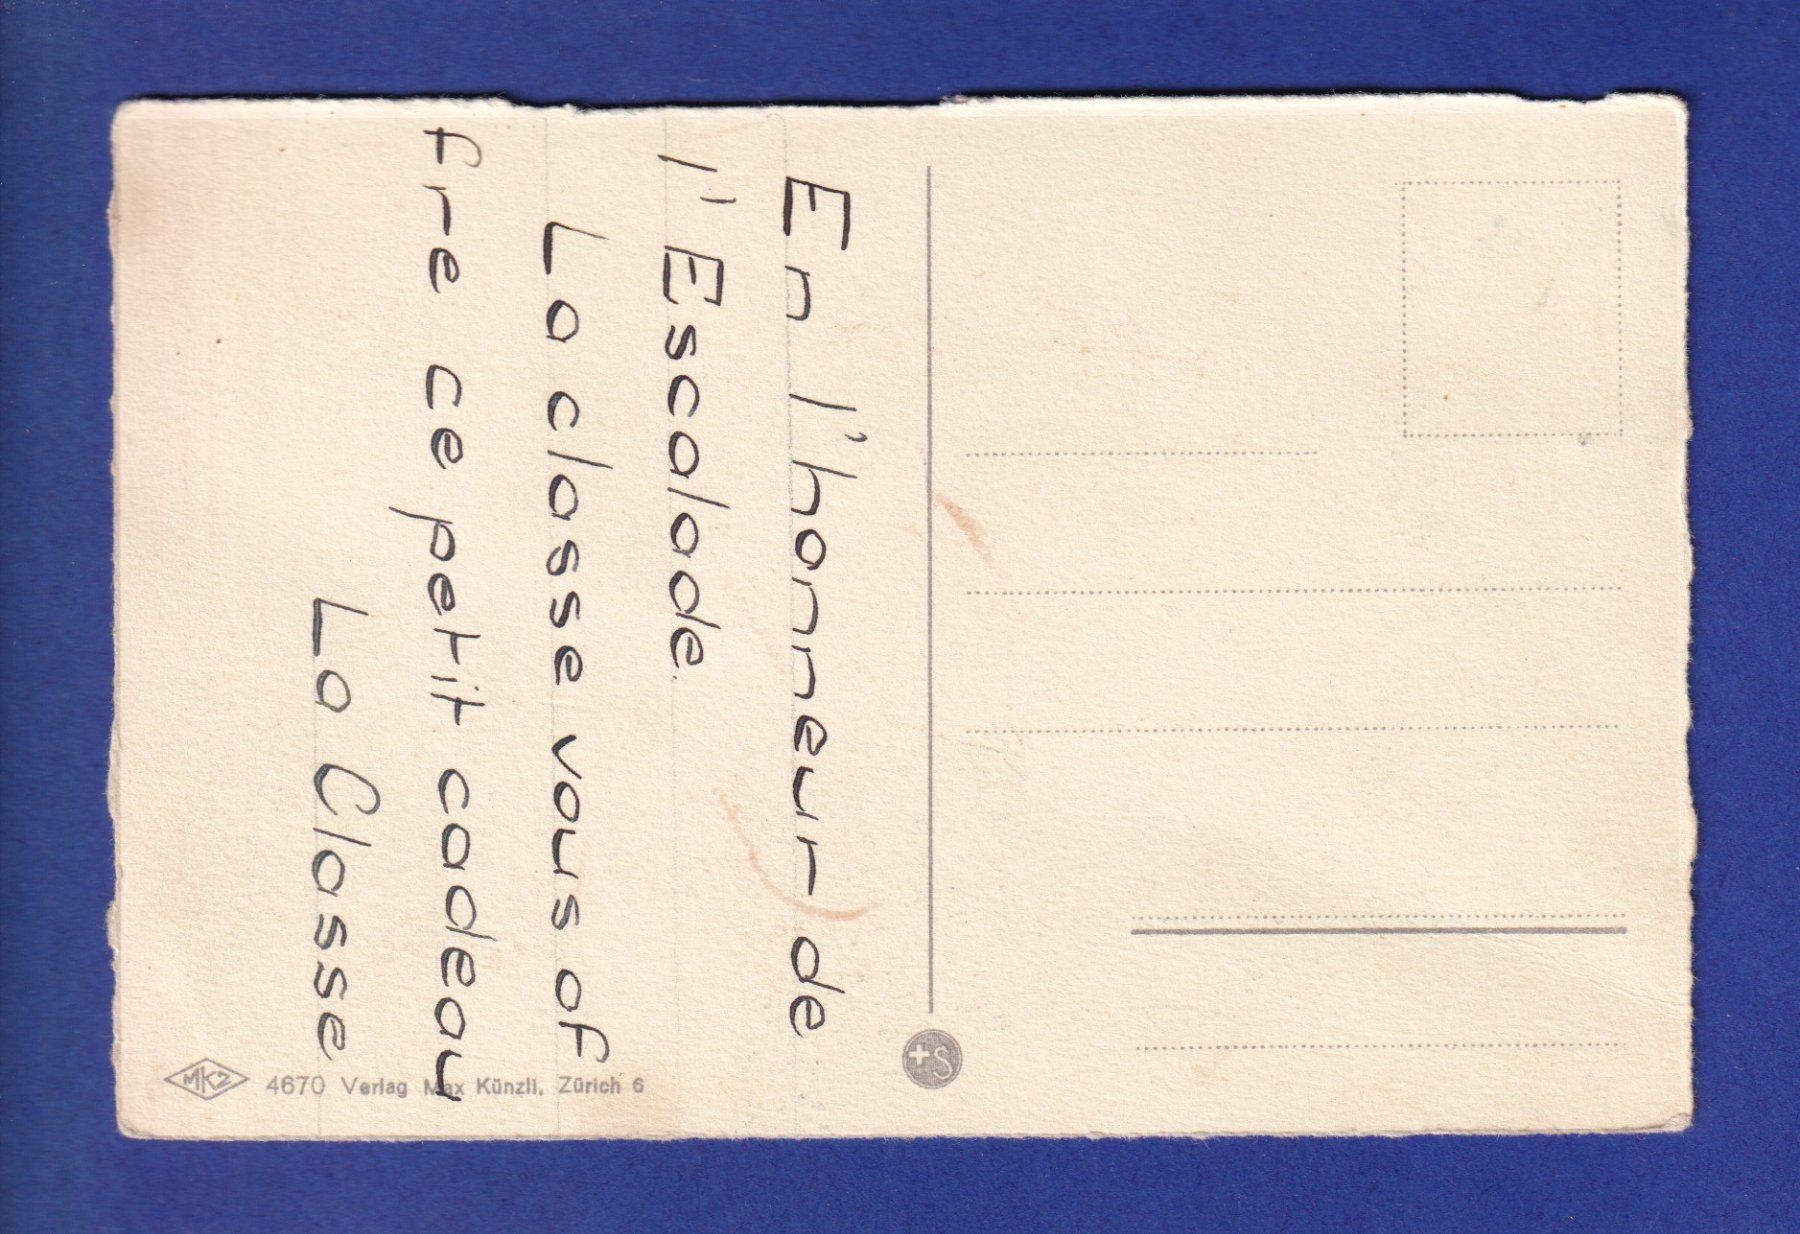 En l'honneur de
l'Escalade.
La classe vous of
fre ce petit cadeau
La Classe
MKZ 4670 Verlag Max Künzli, Zürich 6
+S